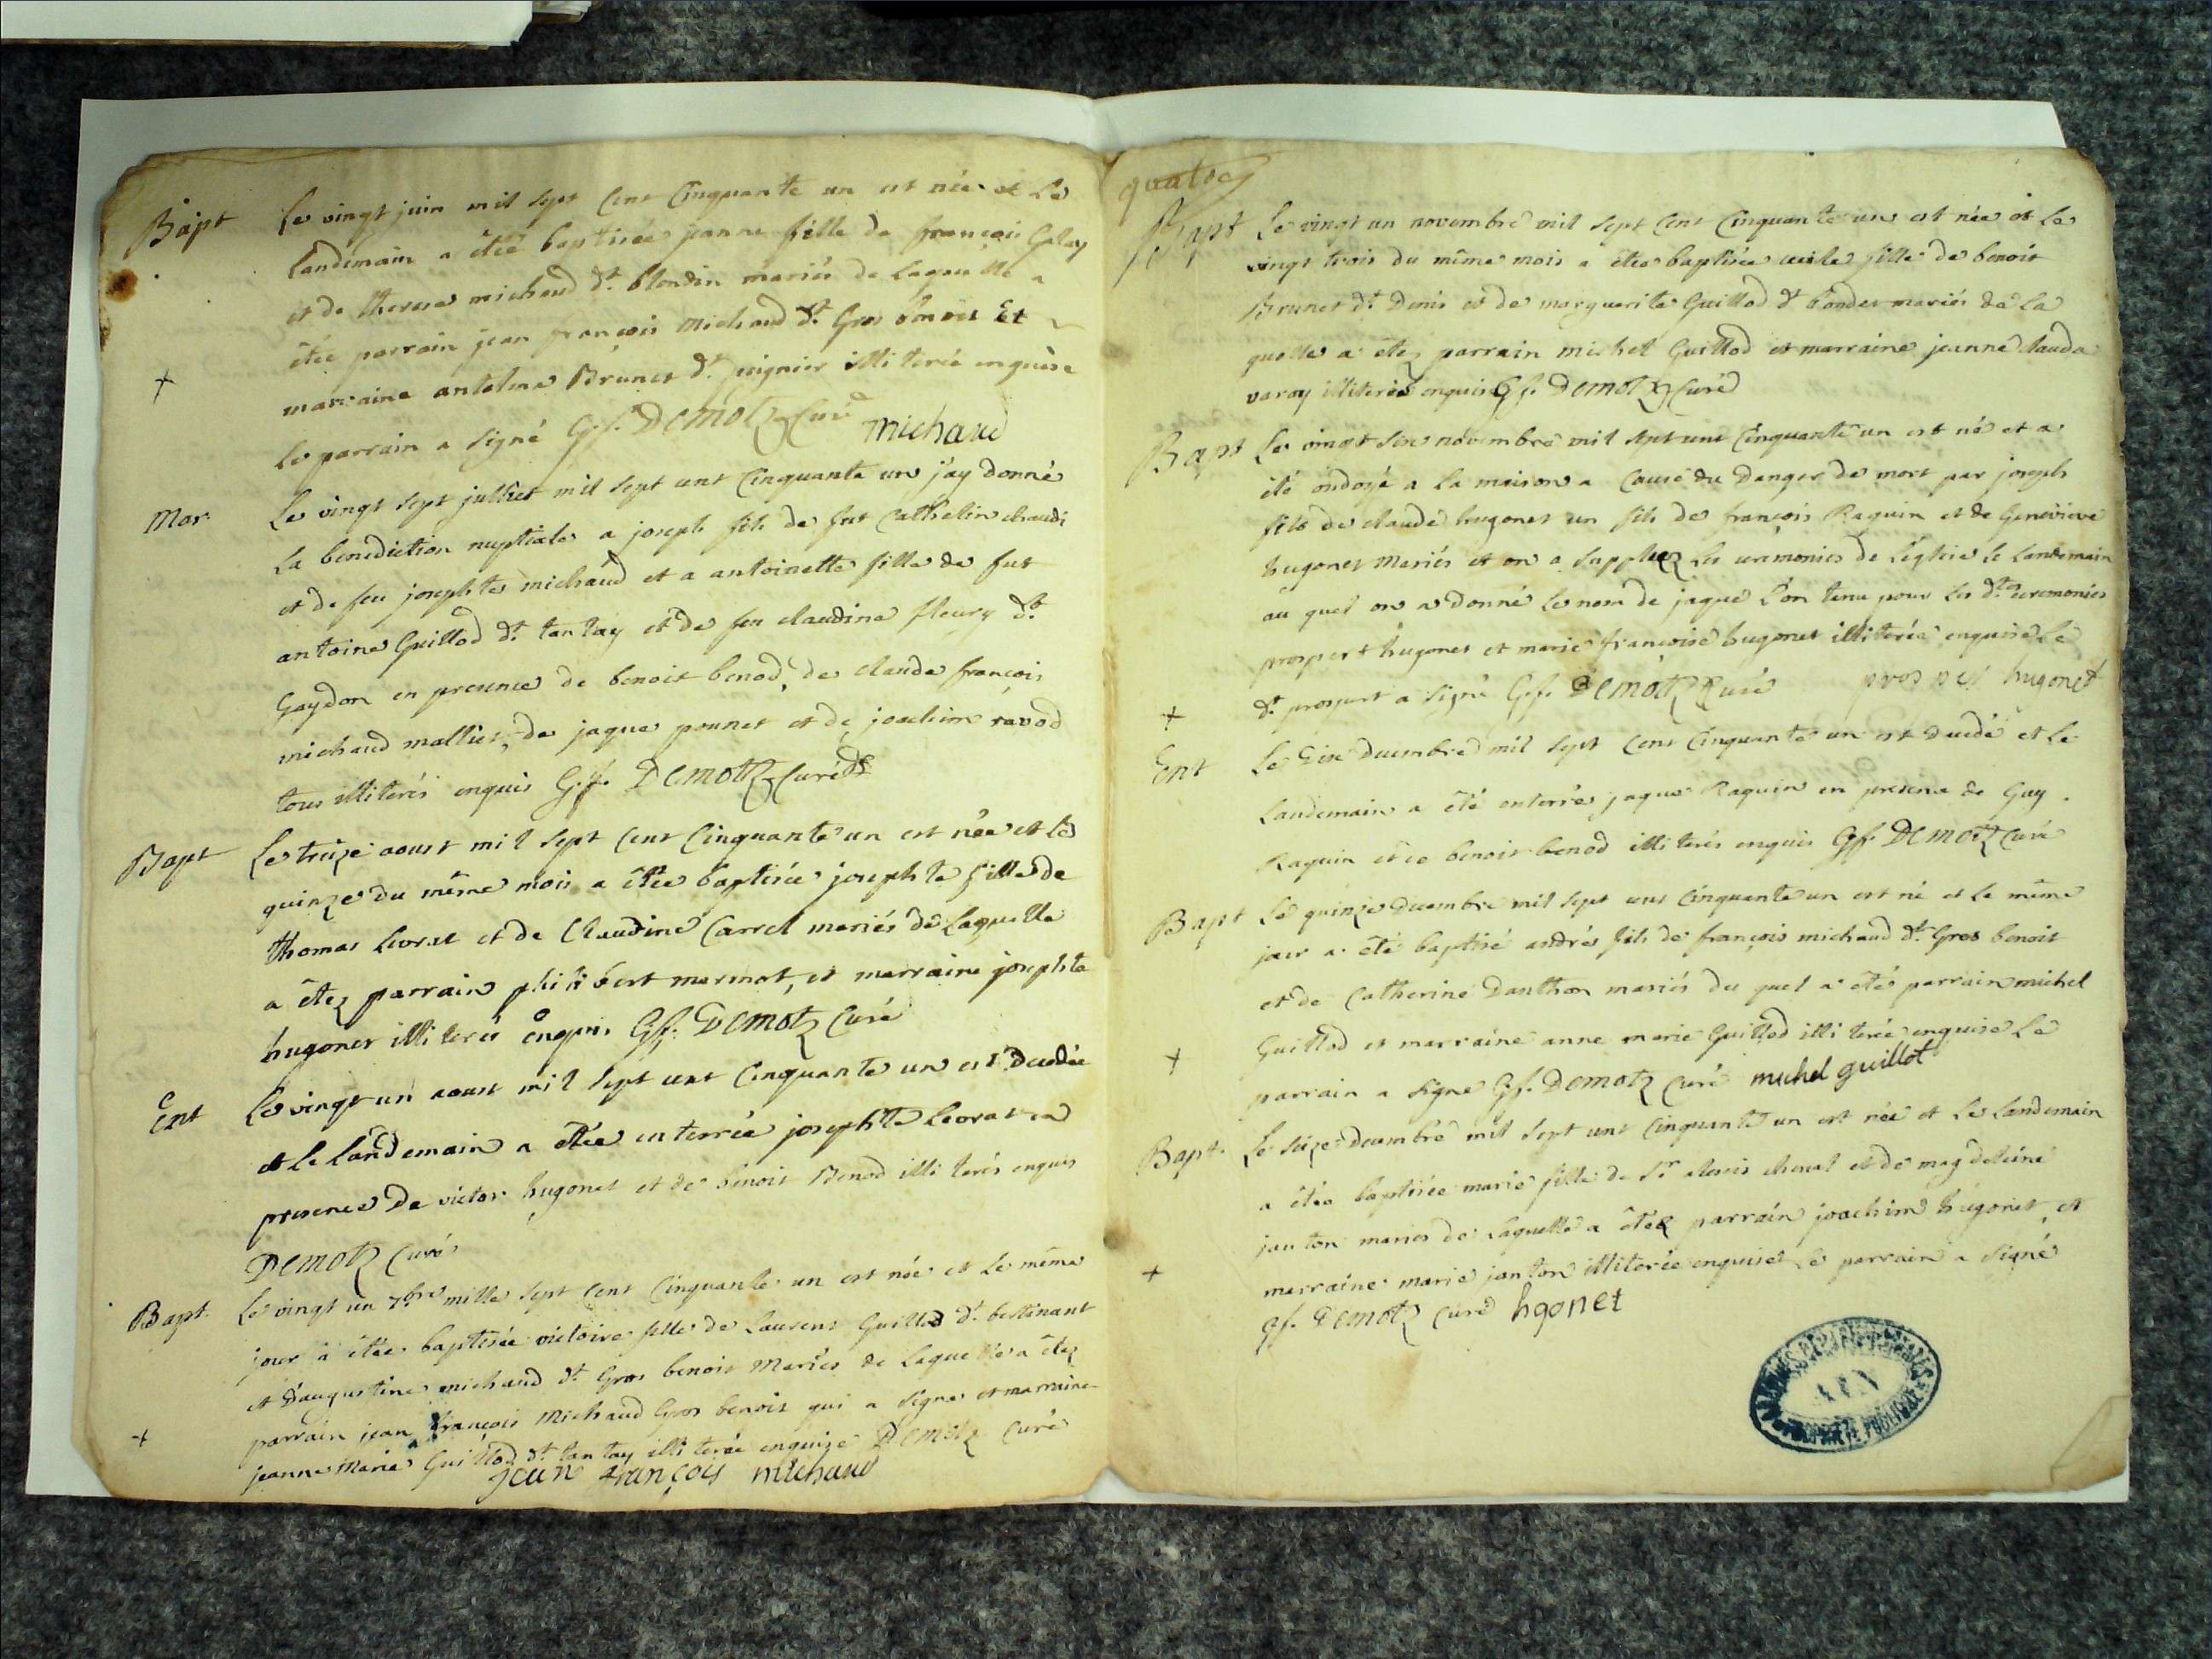 Bapt Le vingt juin mil sept Cent Cinquante un est née et Le
landemain a étée baptisée janne fille de françois Galay
et de therese michaud dt. blondin mariés de laquelle a
étée parrain jean françois michaud dt. Gros benoit Et
marraine antelme Brunet dt. peignier illiterée enquise
Le parrain a signé G.f. Demotz Curé michaud
Mar. Le vingt sept julliet mil sept cent Cinquante un j'ay donné
La benediction nuptiale a joseph fils de fut Cathelin
et de feu josephte michaud et a antoinette fille de fut
antoine Guillod dt. tantay et de feu claudine fleury dt.
Gaydon en presence de benoit benod, de claude françois
michaud mallier, de jaque pounet et de joachim ravod
tous illiterés enquis G.f. Demotz Curé
Bapt Le treize aoust mil sept Cent Cinquante un est née et le
quinze du même mois a étée baptisée josephte fille de
thomas Levrat et de Claudine Carrel mariés de Laquelle
a étez parrain philibert marmot, et marraine josephte
hugonet illiterés enquis G.f. Demotz Curé
Ent Le vingt un aoust mil sept cent Cinquante un est decedée
et le landemain a étée enterrée josephte Levrat en
presence de victor hugonet et de benoit Benod illiterés enquis
Demotz Curé
Bapt. Le vingt un 7bre mille sept Cent Cinquante un est née et le même
jour a étée baptisée victoire fille de Laurens Guillod dt.
et d'augustine michaud dt. Gros benoit Mariés de laquelle a étez
parrain jean françois Michaud Gros benoit qui a signe et marraine
jeanne Marie Guillod dt. tantay illiterée enquise Demotz Curé
jean françois michaud
quatre
Bapt Le vingt un novembre mil sept Cent Cinquante un est née et Le
vingt trois du même mois a étée baptisée cecile fille de benoit
Brunet dt. Denis et de marguerite Guillod dt bondet mariés de la
quelle a étez parrain michel Guillod et marraine jeanne clauda
varay illiterés enquis G.f. Demotz Curé
Bapt Le vingt six novembre mil sept cent Cinquante un est né et a
été ondoyé a la maison a Cause du Danger de mort par joseph
fils de claude hugonet un fils de françois Raquin et de Genevieve
hugonet Mariés et on a suppleez Les ceremonies de l'église le landemain
au quel on a donné le nom de jaque l'on tenu pour les dtes. ceremonies
prospert hugonet et marie françoise hugonet illiterée enquise Le
dt. prospert a signé G.f. Demotz Curé prosper hugonet
Ent Le Dix decembre mil sept Cent Cinquante un est decedé et le
landemain a été enterré jaque Raquin en presence de Guy
Raquin et de benoit benod illiterés enquis G.f. Demotz Curé
Bapt Le quinze decembre mil sept cent Cinquante un est né et le même
jour a été baptisé andré fils de françois michaud dt. Gros benoit
et de Catherine Danthon mariés du quel a été parrain michel
Guillod et marraine anne marie Guillod illiterée enquise Le
parrain a signe G.f. Demotz Curé michel guillot
Bapt. Le seize decembre mil sept cent Cinquante un est née et le landemain
a étée baptisée marie fille de Sr alexis chenal et de magdeleine
janton mariés de Laquelle a étez parrain joachim hugonet, et
marraine marie janton illiterée enquise Le parrain a signé
G.f. Demotz Curé hgonet